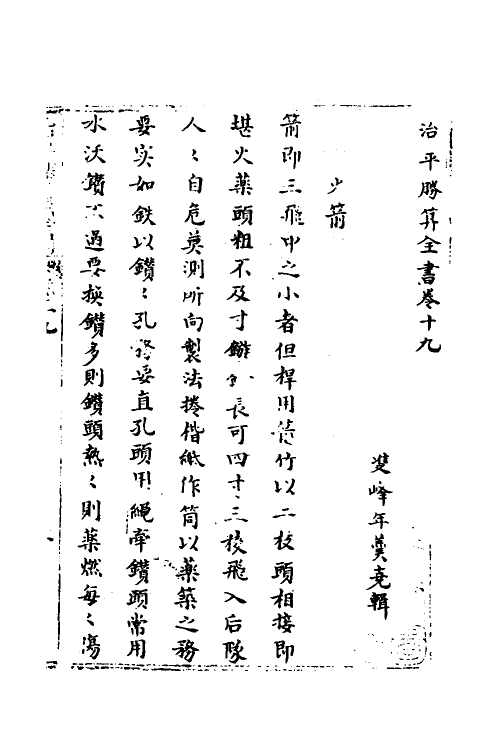 治平勝筭全書卷十九
雙峰年羮尭輯
火箭
箭即三飛中之小者但桿用荻竹以二枝頭相接即
堪火藥頭粗不及寸鏃 長可四寸三稜飛入后隊
人〻自危莫测所向製法捲偕紙作筒以藥築之務
要实如鉄以鑽〻孔 要直孔頭用繩牽鑽頭常用
水沃 过 要换鑽多則鑽頭熱〻則藥燃每〻傷